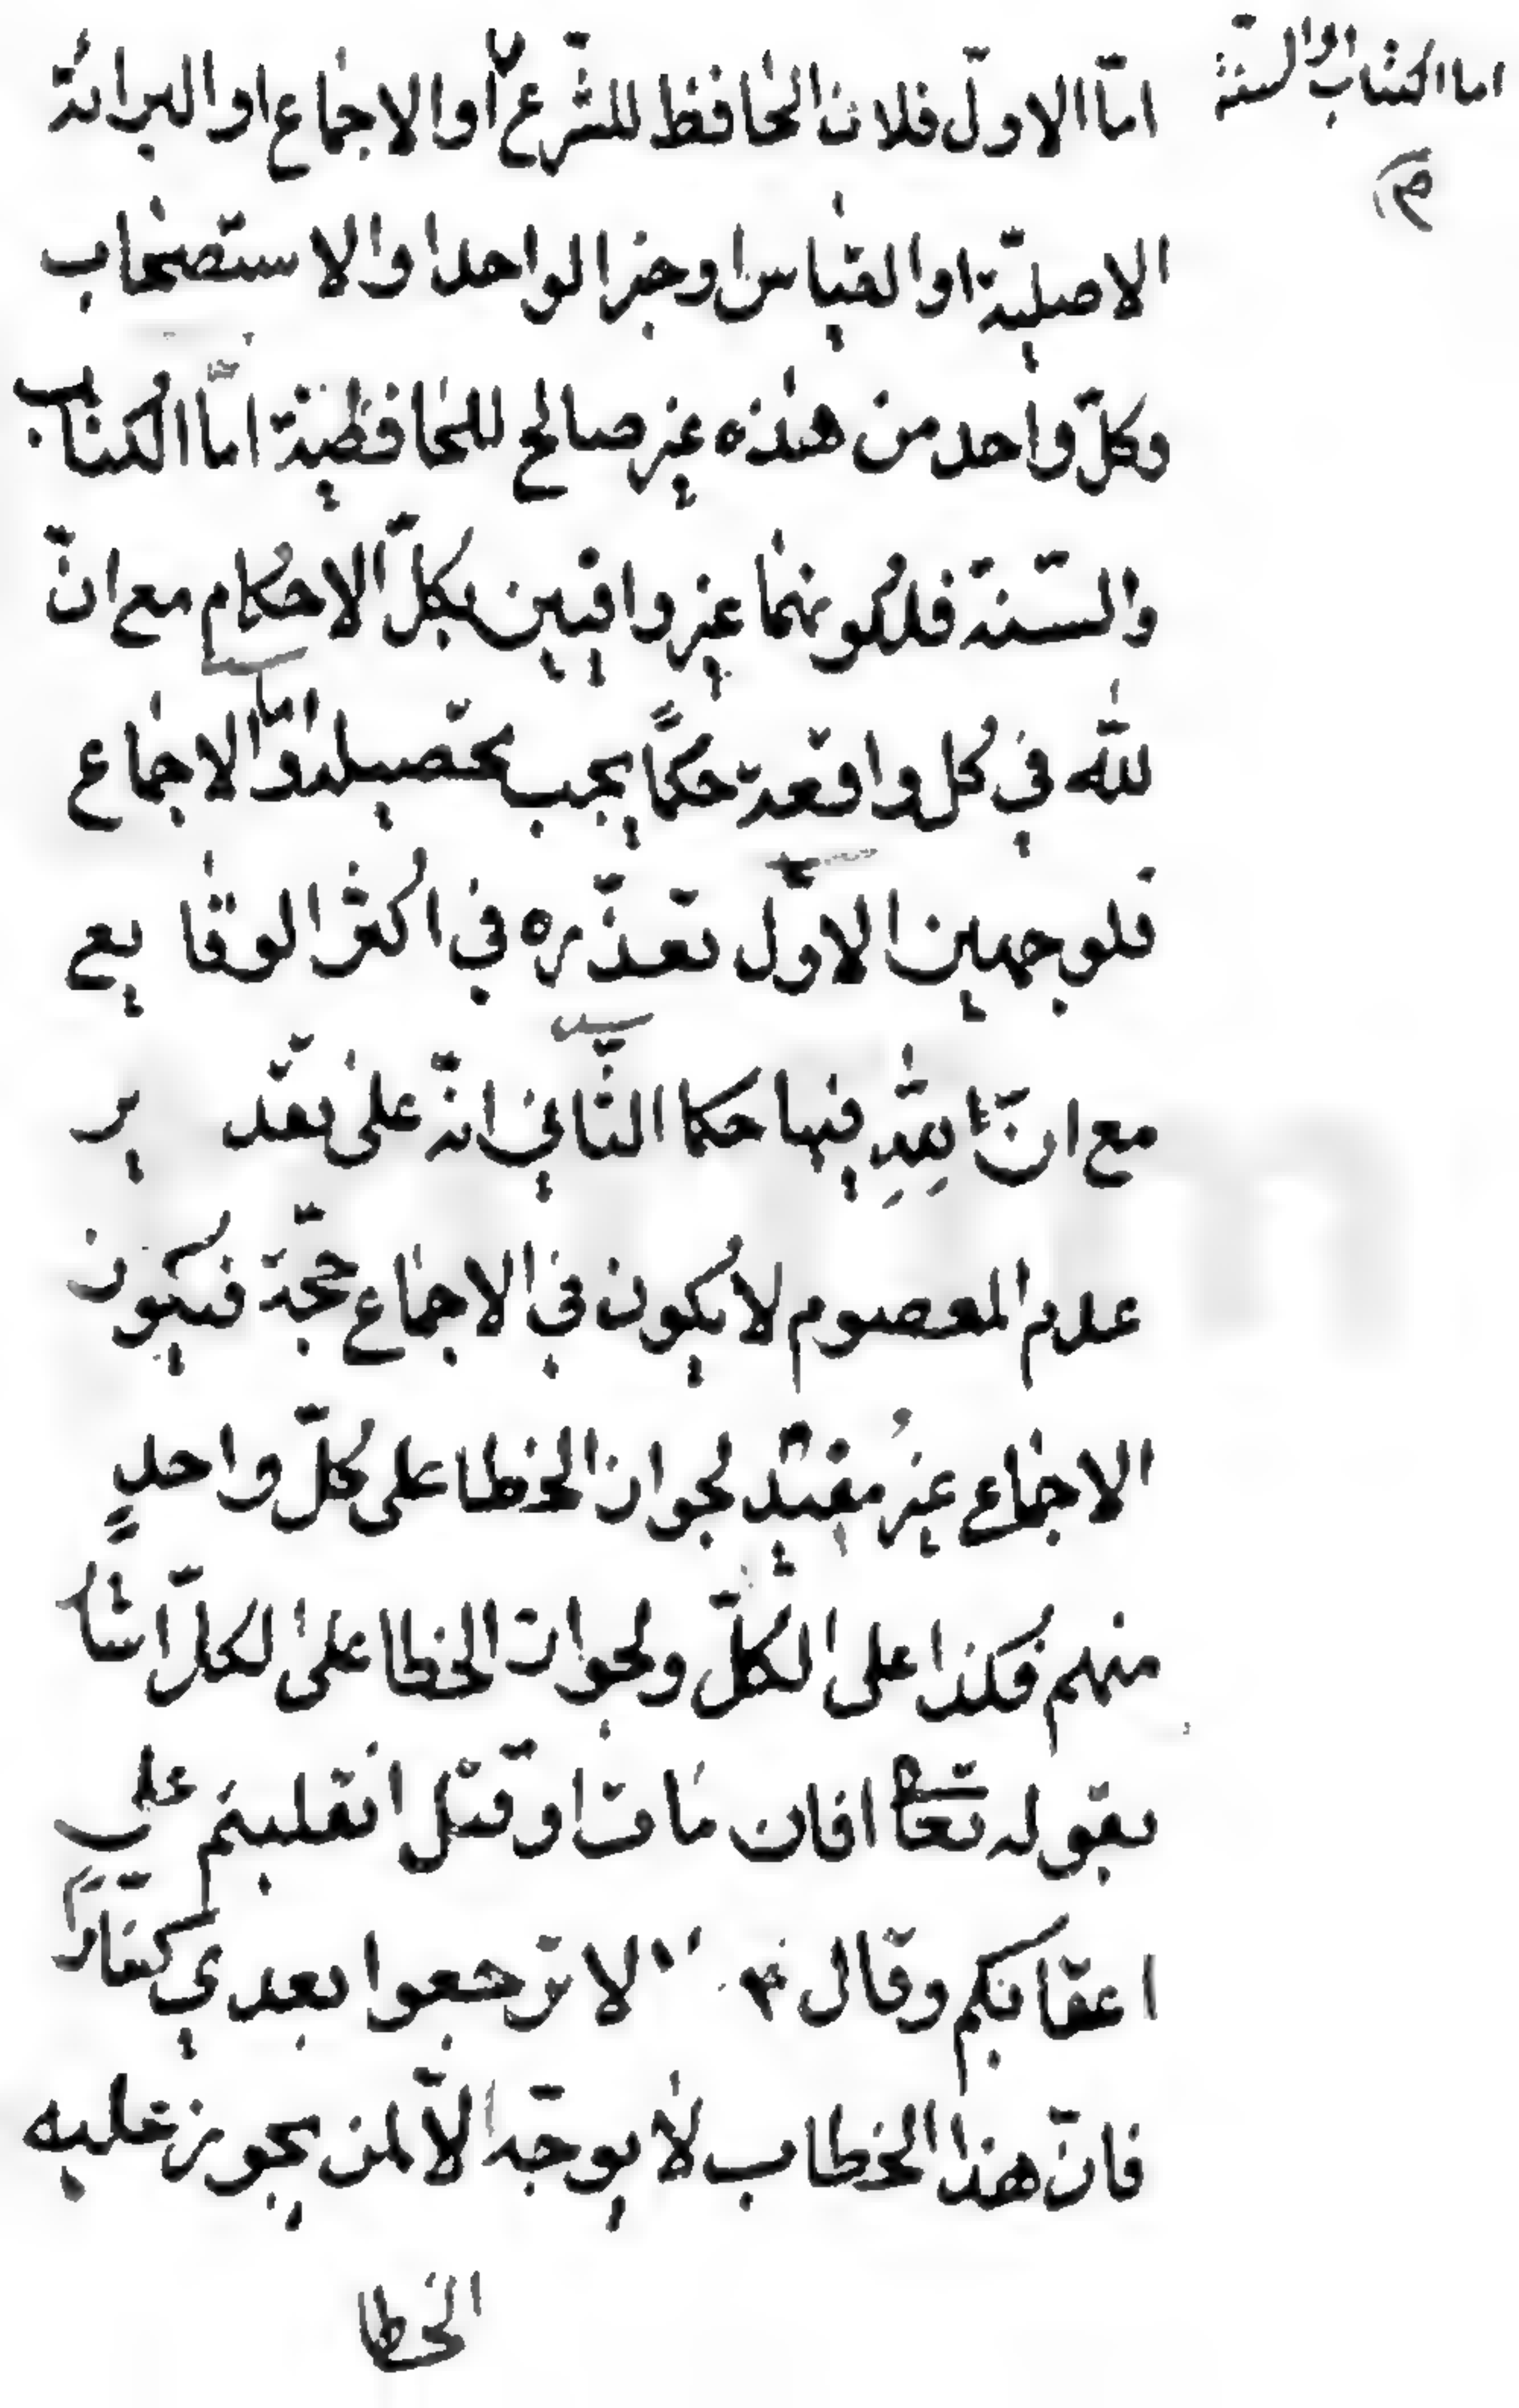 اما الكتاب او السنة
م
امّا الاولّ فلانّ الحافظ للشّرع اوالاجماع اوالبرائة
الاصليّة اوالقياس اوخبر الواحد اوالاستصحاب
وكلّ واحد من هذه غير صالح للمحافظية امّا الكتاب
والسّنة فلكونهما غير وافيين بكلّ الاحكام مع انّ
للّه في كل واقعة حكمًا يجب تحصيله وامّا الاجماع
فلوجهين الاوّل تعذّره في اكثر الوقايع
مع انّ للّهِ فيها حكما الثّاني انّه على تقدير
عدم المعصوم لا يكون في الاجماع حجّة فيكون
الاجماع غيرُ مفيد لجواز الخطا على كُلّ واحدٍ
منهم فكذا على الكلّ ولجواز الخطا على لكلّ اشار
بقوله تعا افان مات اوقتل انقلبتم على
اعقابكم وقال لا ترجعوا بعدي كفّارًا
فانّ هذا الخطاب لا يوجّه الّا لمن يجوز عليه
الخطا